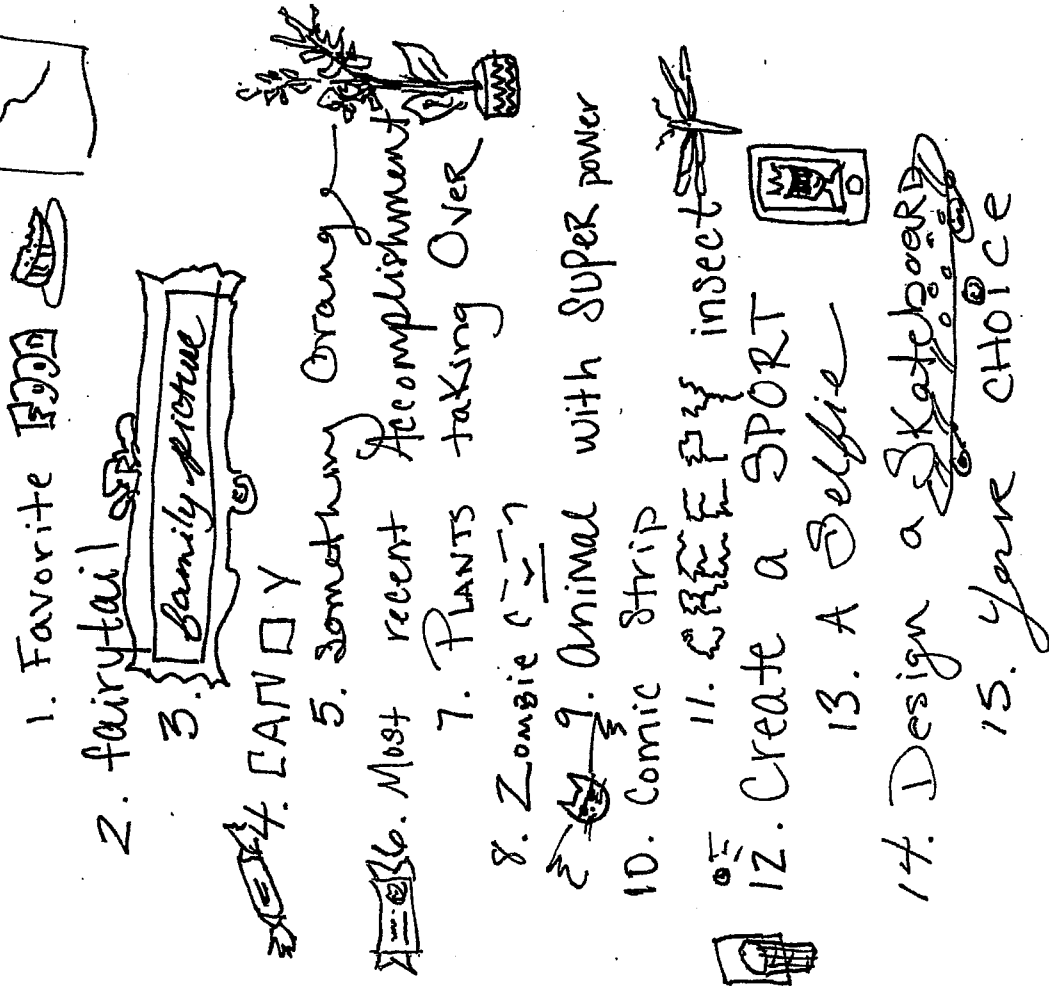 1. Favorite FOOD
2. fairytail
3. family picture
4. CANDY
5. Something Orange
6. Most recent Accomplishment
7. PLANTS taking OVER
8. Zombie
9. Animal with SUPER power
10. Comic Strip
11. CREEPY insect
12. Create a SPORT
13. A Selfie
14. Design a SKateboaRD
15. Your CHOICE